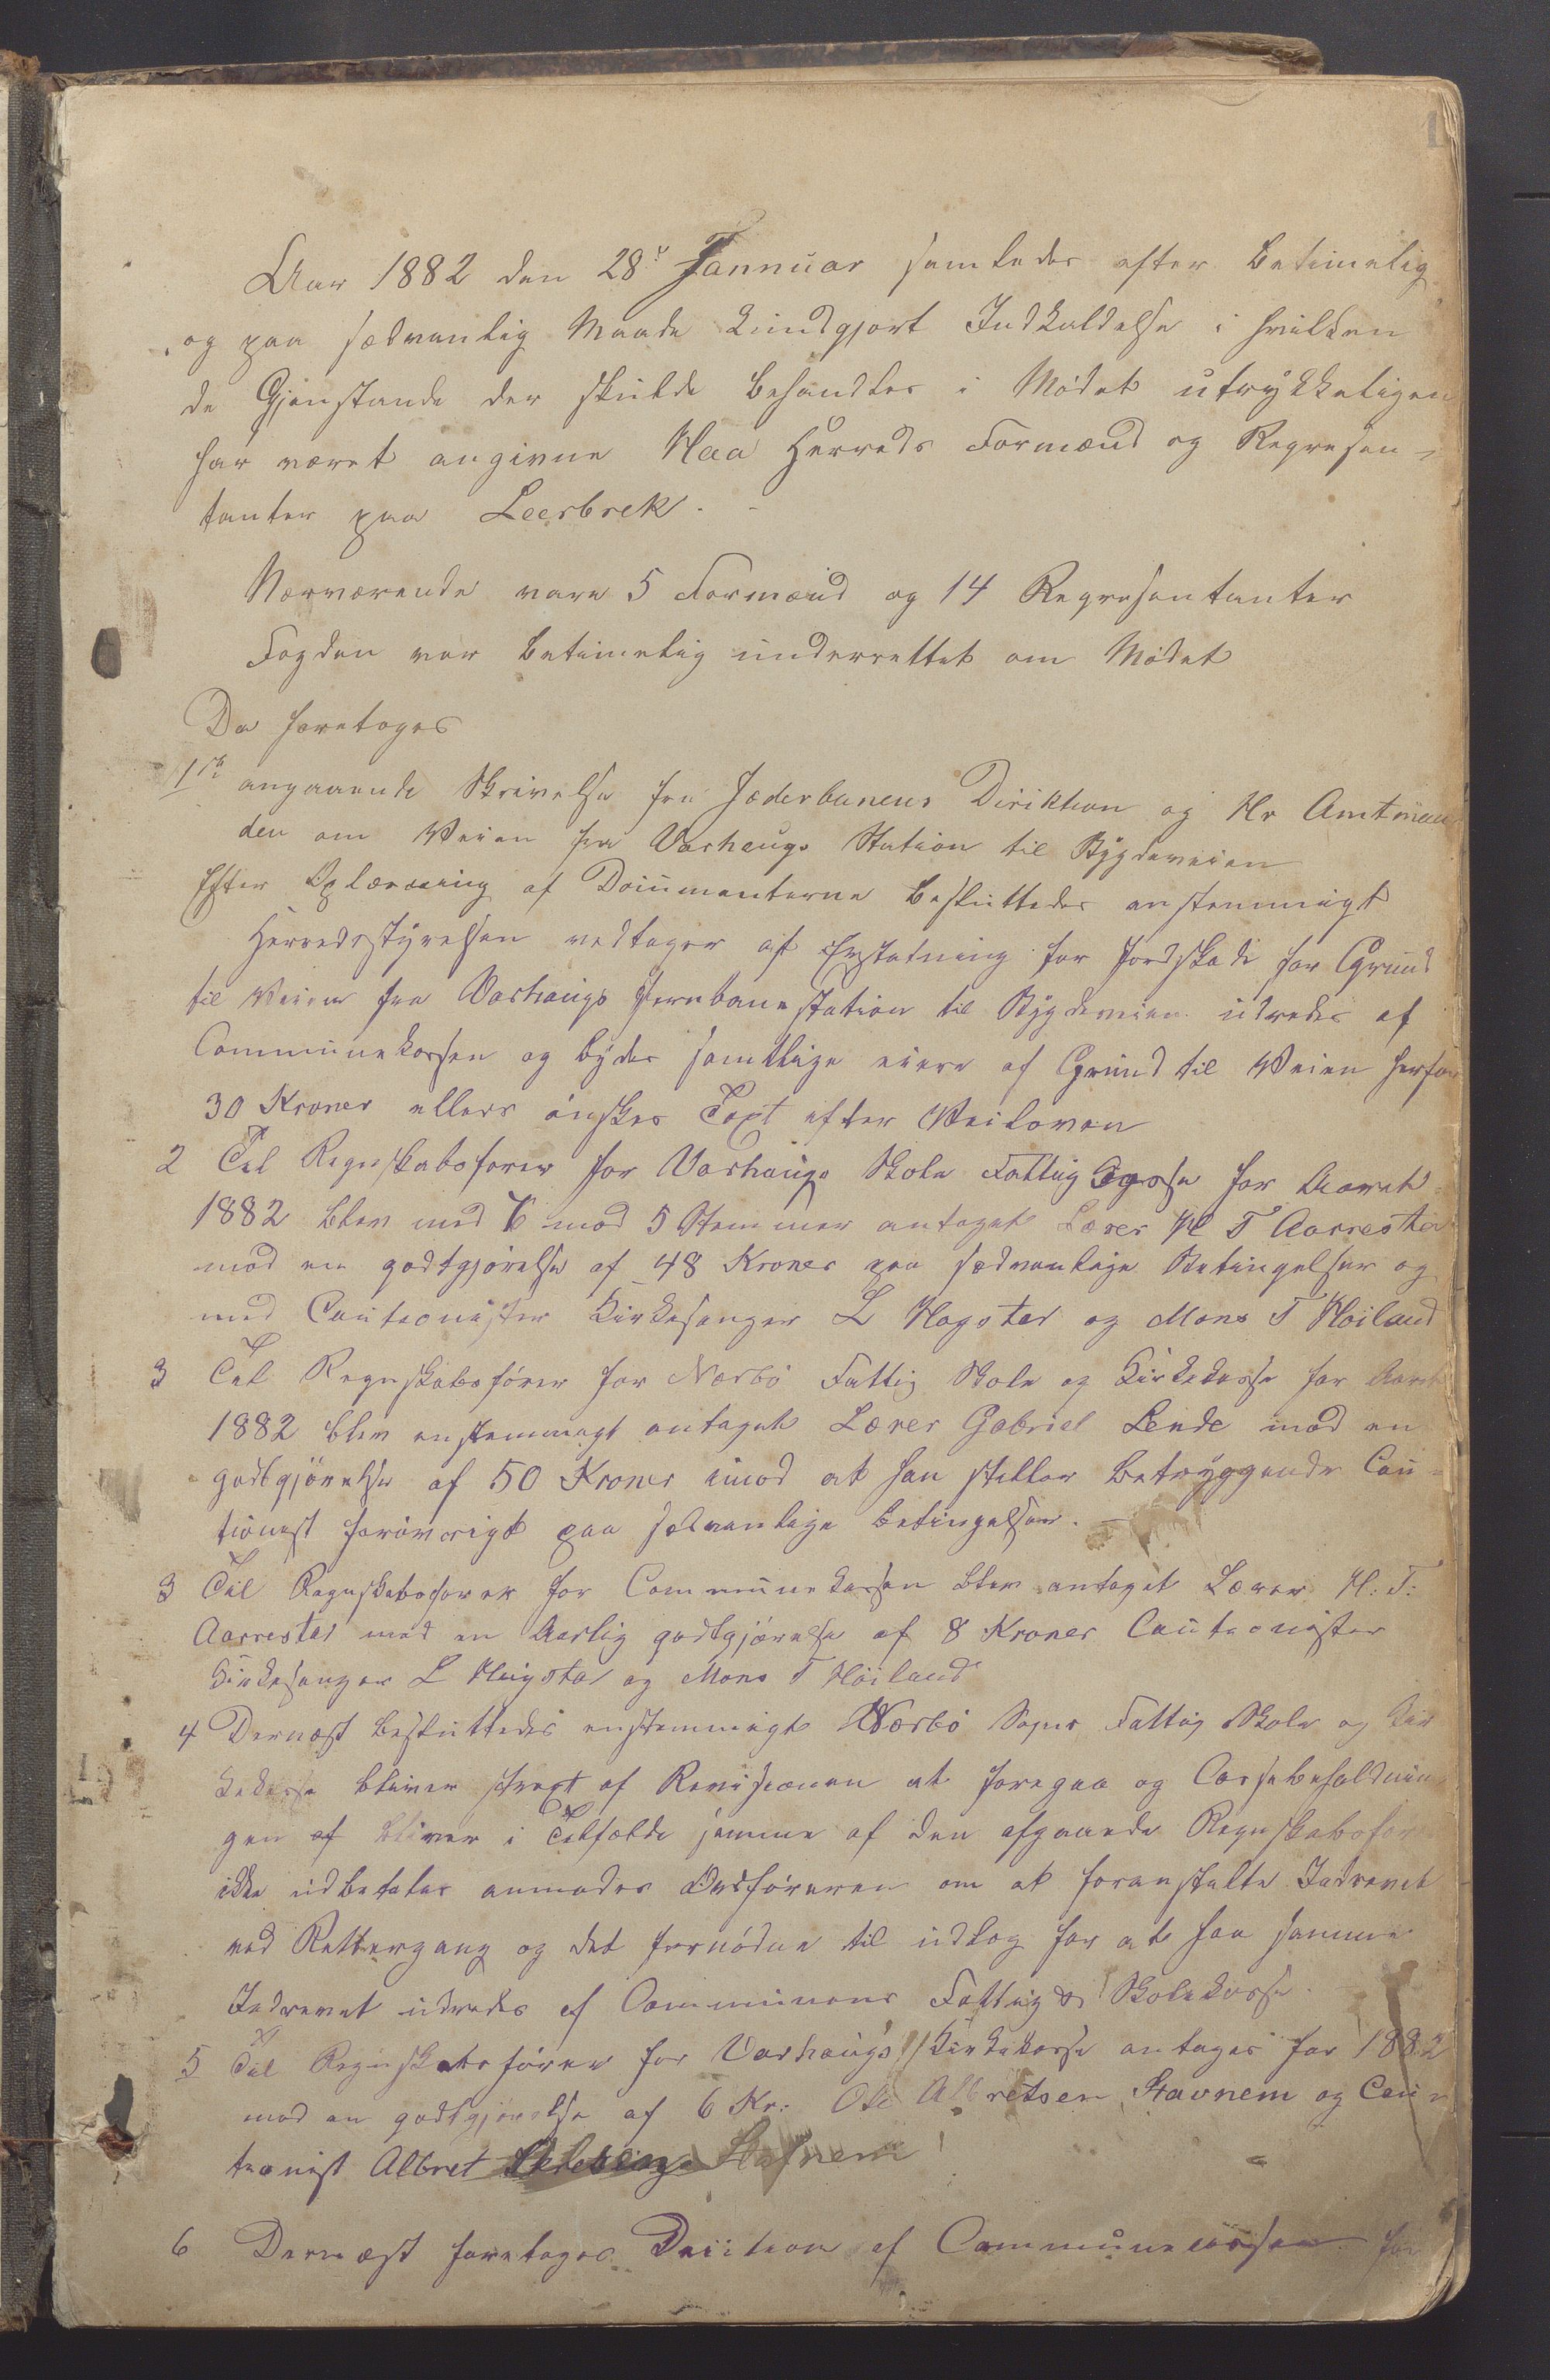 1
Aar 1882 den 28de Jannuar samledes efter betimelig
og paa sædvanlig Maade kundgjort Indkaldelse i hvilken
de Gjenstande der skulde behandles i Mødet utrykkeligen
har været angivne Haa Herreds Formænd og Represen-
tanter paa Leerbrek. -
Nærværende vare 5 Formænd og 14 Represententanter
Fogden var betimelig underrettet om Mødet
Da foretoges
1ste angaaende Skrivelse fra Jæderbanens Diriktion og Hr Amtman
den om Veien fra Varhaugs Station til Bygdeveien
Efter Oplæsning af Doiumenterne besluttedes enstemmigt
Herredsstyrelsen vedtager at Erstatning for Jordskade for Grund
til Veien fra Varhaugs Jernbanestation til Bygdeveien udredes af
Communekassen og bydes samtlige eiere af Grund til Veien herfor
30 Kroner ellers ønskes Taxt efter Veiloven
2 Til Regnskabsfører for Varhaugs Skole Fattig for Aaret
1882 blev med 6 mod 5 Stemmer antaget Lærer H T Aarrestad
mod en godtgjørelse af 48 Kroner paa sædvanlige Betingelser og
med Cautionister Kirkesanger L Hogstad og Mons T Høiland
3 Til Regnskabsfører for Nærbø Fattig Skole og Kirkekasse for Aaret
1882 blev enstemmigt antaget Lærer Gabriel Lende mod en
godtgjørelse af 50 Kroner imod at han stiller betryggende Cau-
tionist forøvrigt paa sædvanlige betingelser. -
3 Til Regnskabsfører for Communekassen blev antaget Lærer H: T:
Aarrestad mod en Aarlig godtgjørelse af 8 Kroner Cautionister
Kirkesanger L Hugstad og Mons T Høiland
4 Dernæst besluttedes enstemmigt Nærbø Sogns Fattig Skole og Kir
kekasse bliver strext af Revisionen at foregaa og Cassebeholdnin
gen af bliver i Tilfælde samme af den afgaaende Regnskabsfør
ikke udbetales anmodes Ordføreren om at foranstalte Indrevet
ved Rettergang og det fornødne til udlag for at faa samme
Indrevet udredes af Communens Fattig & Skolekasse.
5 Til Regnskabsfører for Varhaugs Kirkekasse antages for 1882
mod en godtgjørelse af 6 Kr: Ole Albretsen Stavnem og Cau-
tionist Albret Stafnem
6 Dernæst foretoges af Communecassen for